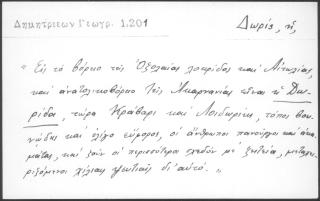 Δημητριέων Γεωγρ. 1.201
Δωρίς, ἡ,
" Εἰς τὸ βόρειο τῆς Ὀζολαίας Λοκρίδας καὶ Αἰτωλίας,
καὶ ἀνατολικοβόρειο τῆς Ἀκαρνανίας εἶναι ἡ Δω-
ρίδα, τώρα Κράβαρι καὶ Λοιδωρίκι, τόποι βου-
νώδεις καὶ ὀλίγο εὔφοροι, οἱ ἄνθρωποι πανοῦργοι καὶ ἀκα-
μάτες, καὶ ζοῦν οἱ περισσότεροι σχεδὸν μὲ ζητεία, μεταχει-
ριζόμενοι χίλιαις ψευτιαῖς δι' αὐτό. "